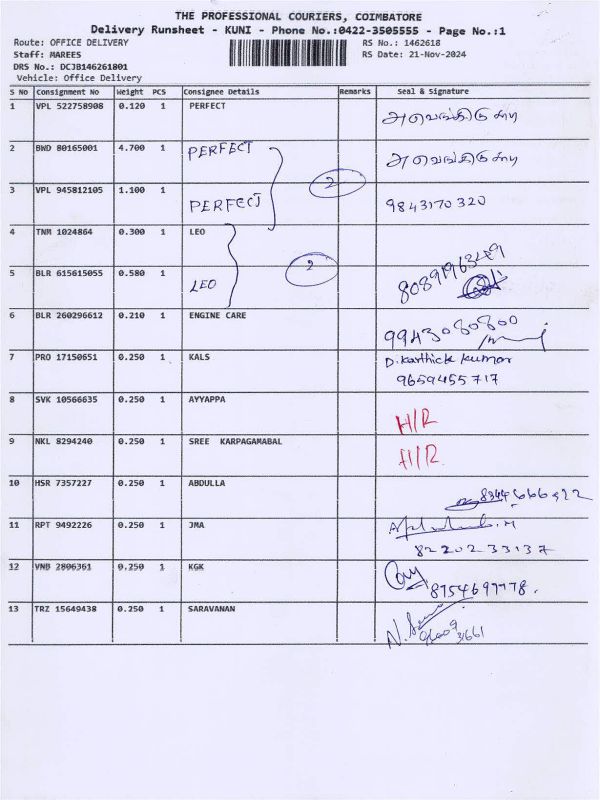 THE PROFESSIONAL COURIERS, COIMBATORE
Delivery Runsheet - KUNI - Phone No.:0422-3505555 - Page No.:1
Route: OFFICE DELIVERY RS No.: 1462618
Staff: MAREES RS Date: 21-Nov-2024
DRS No.: DCJB146261801
Vehicle: Office Delivery
S No Consignment No Weight PCS Consignee Details Remarks Seal & Signature
1 VPL 522758908 0.120 1 PERFECT
2 BWD 80165001 4.700 1 PERFECT
3 VPL 945812105 1.100 1 PERFECT 2 9843170320
4 TNM 1024864 0.300 1 LEO
5 BLR 615615055 0.580 1 LEO 2
6 BLR 260296612 0.210 1 ENGINE CARE 9943080800
7 PRO 17150651 0.250 1 KALS D. Karthick Kumar
9659455717
8 SVK 10566635 0.250 1 AYYAPPA H/R
9 NKL 8294240 0.250 1 SREE KARPAGAMABAL H/R
10 HSR 7357227 0.250 1 ABDULLA
11 RPT 9492226 0.250 1 JMA
8220233137
12 VNB 2806361 0.250 1 KGK 8754697778.
13 TRZ 15649438 0.250 1 SARAVANAN